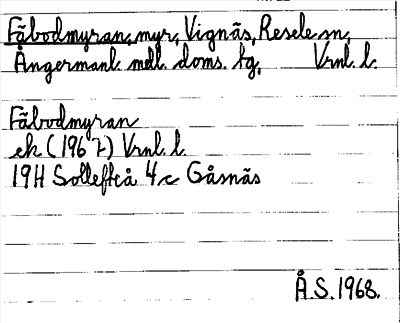 Fäbodmyran, myr, Vignäs, Resele sn,
Ångermanl. mdl. doms. tg. Vrml. l.
Fäbodmyran
ek (1967) Vrml. l.
19H Sollefteå 4c Gåsnäs
Å.S. 1968.